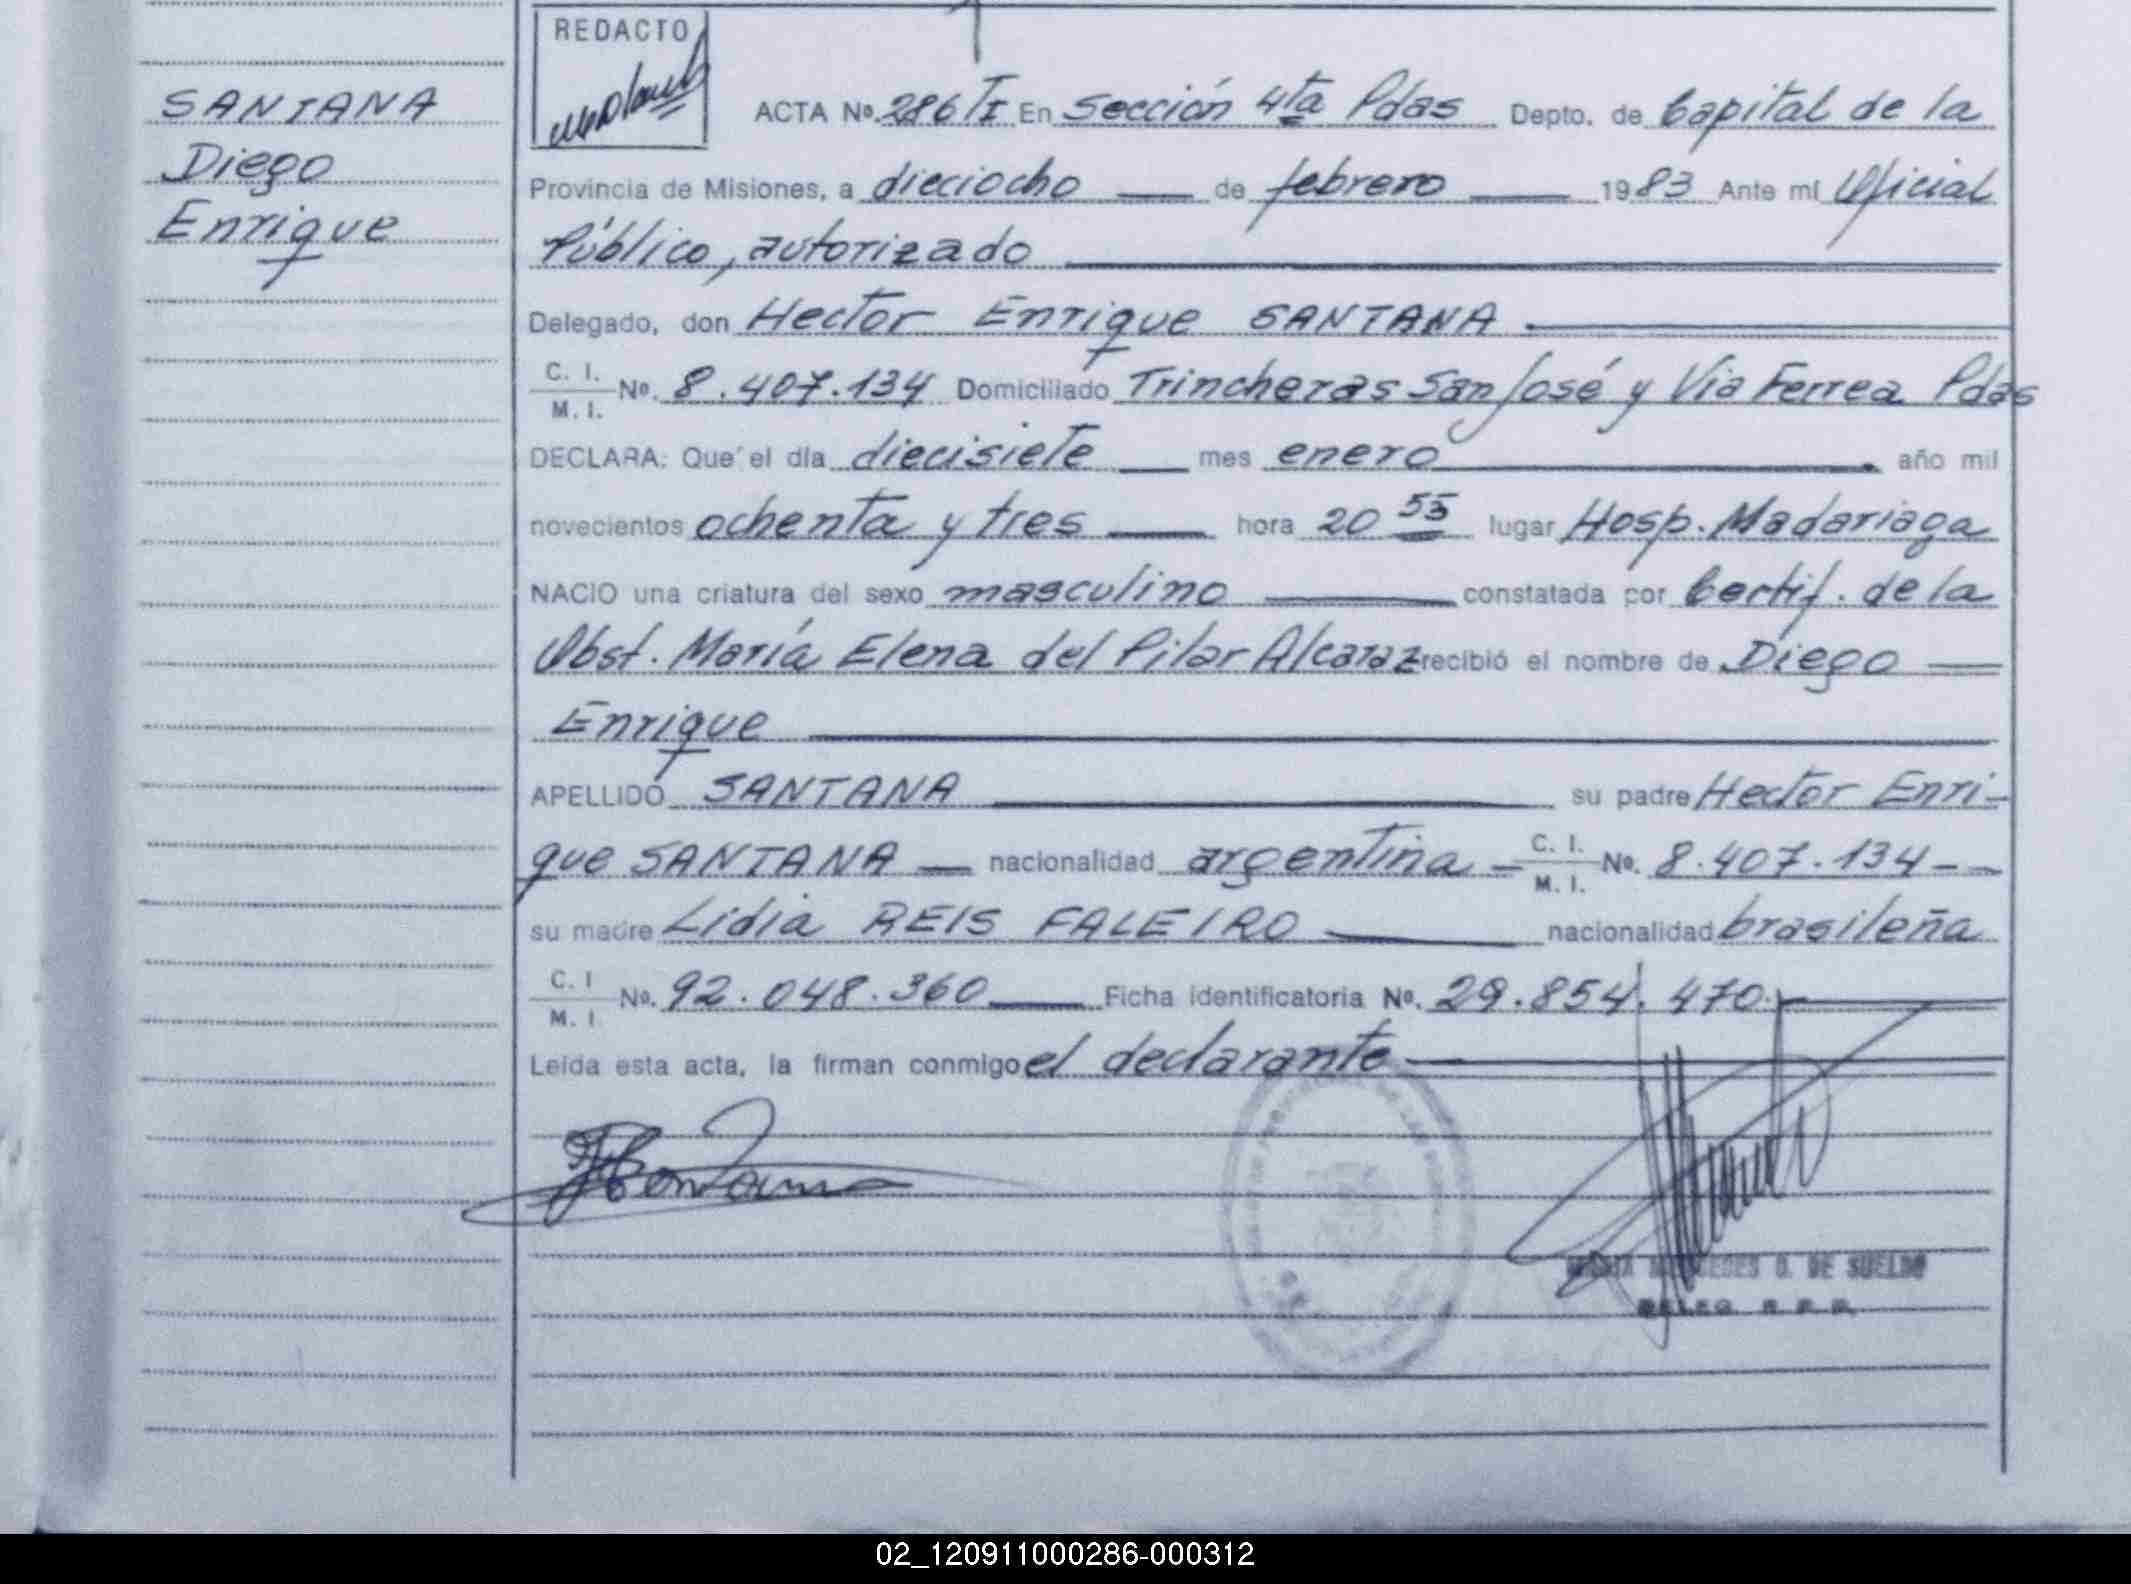 REDACTO
SANTANA
Diego
Enrique
ACTA Nº. 286 TI En Sección 4ta Pdas Depto. de Capital de la
Provincia de Misiones, a dieciocho de febrero 1983 Ante mí Oficial
Público, autorizado
Delegado, don Hector Enrique SANTANA
C. I.
M. I. Nº. 8.407.134 Domiciliado Trincheras San José y Via Ferrea Pdas
DECLARA: Que el día diecisiete mes enero año mil
novecientos ochenta y tres hora 20 55 lugar Hosp. Madariaga
NACIO una criatura del sexo masculino constatada por Certif. de la
Obst. María Elena del Pilar Alcaraz recibió el nombre de Diego
Enrique
APELLIDO SANTANA su padre Hector Enri-
que SANTANA nacionalidad argentina C. I.
M. I. Nº. 8.407.134
su madre Lidia REIS FALEIRO nacionalidad brasileña
C. I
M. I Nº. 92.048.360 Ficha identificatoria Nº. 29.854.470
Leída esta acta, la firman conmigo el declarante
DE SUELDO
02_120911000286-000312